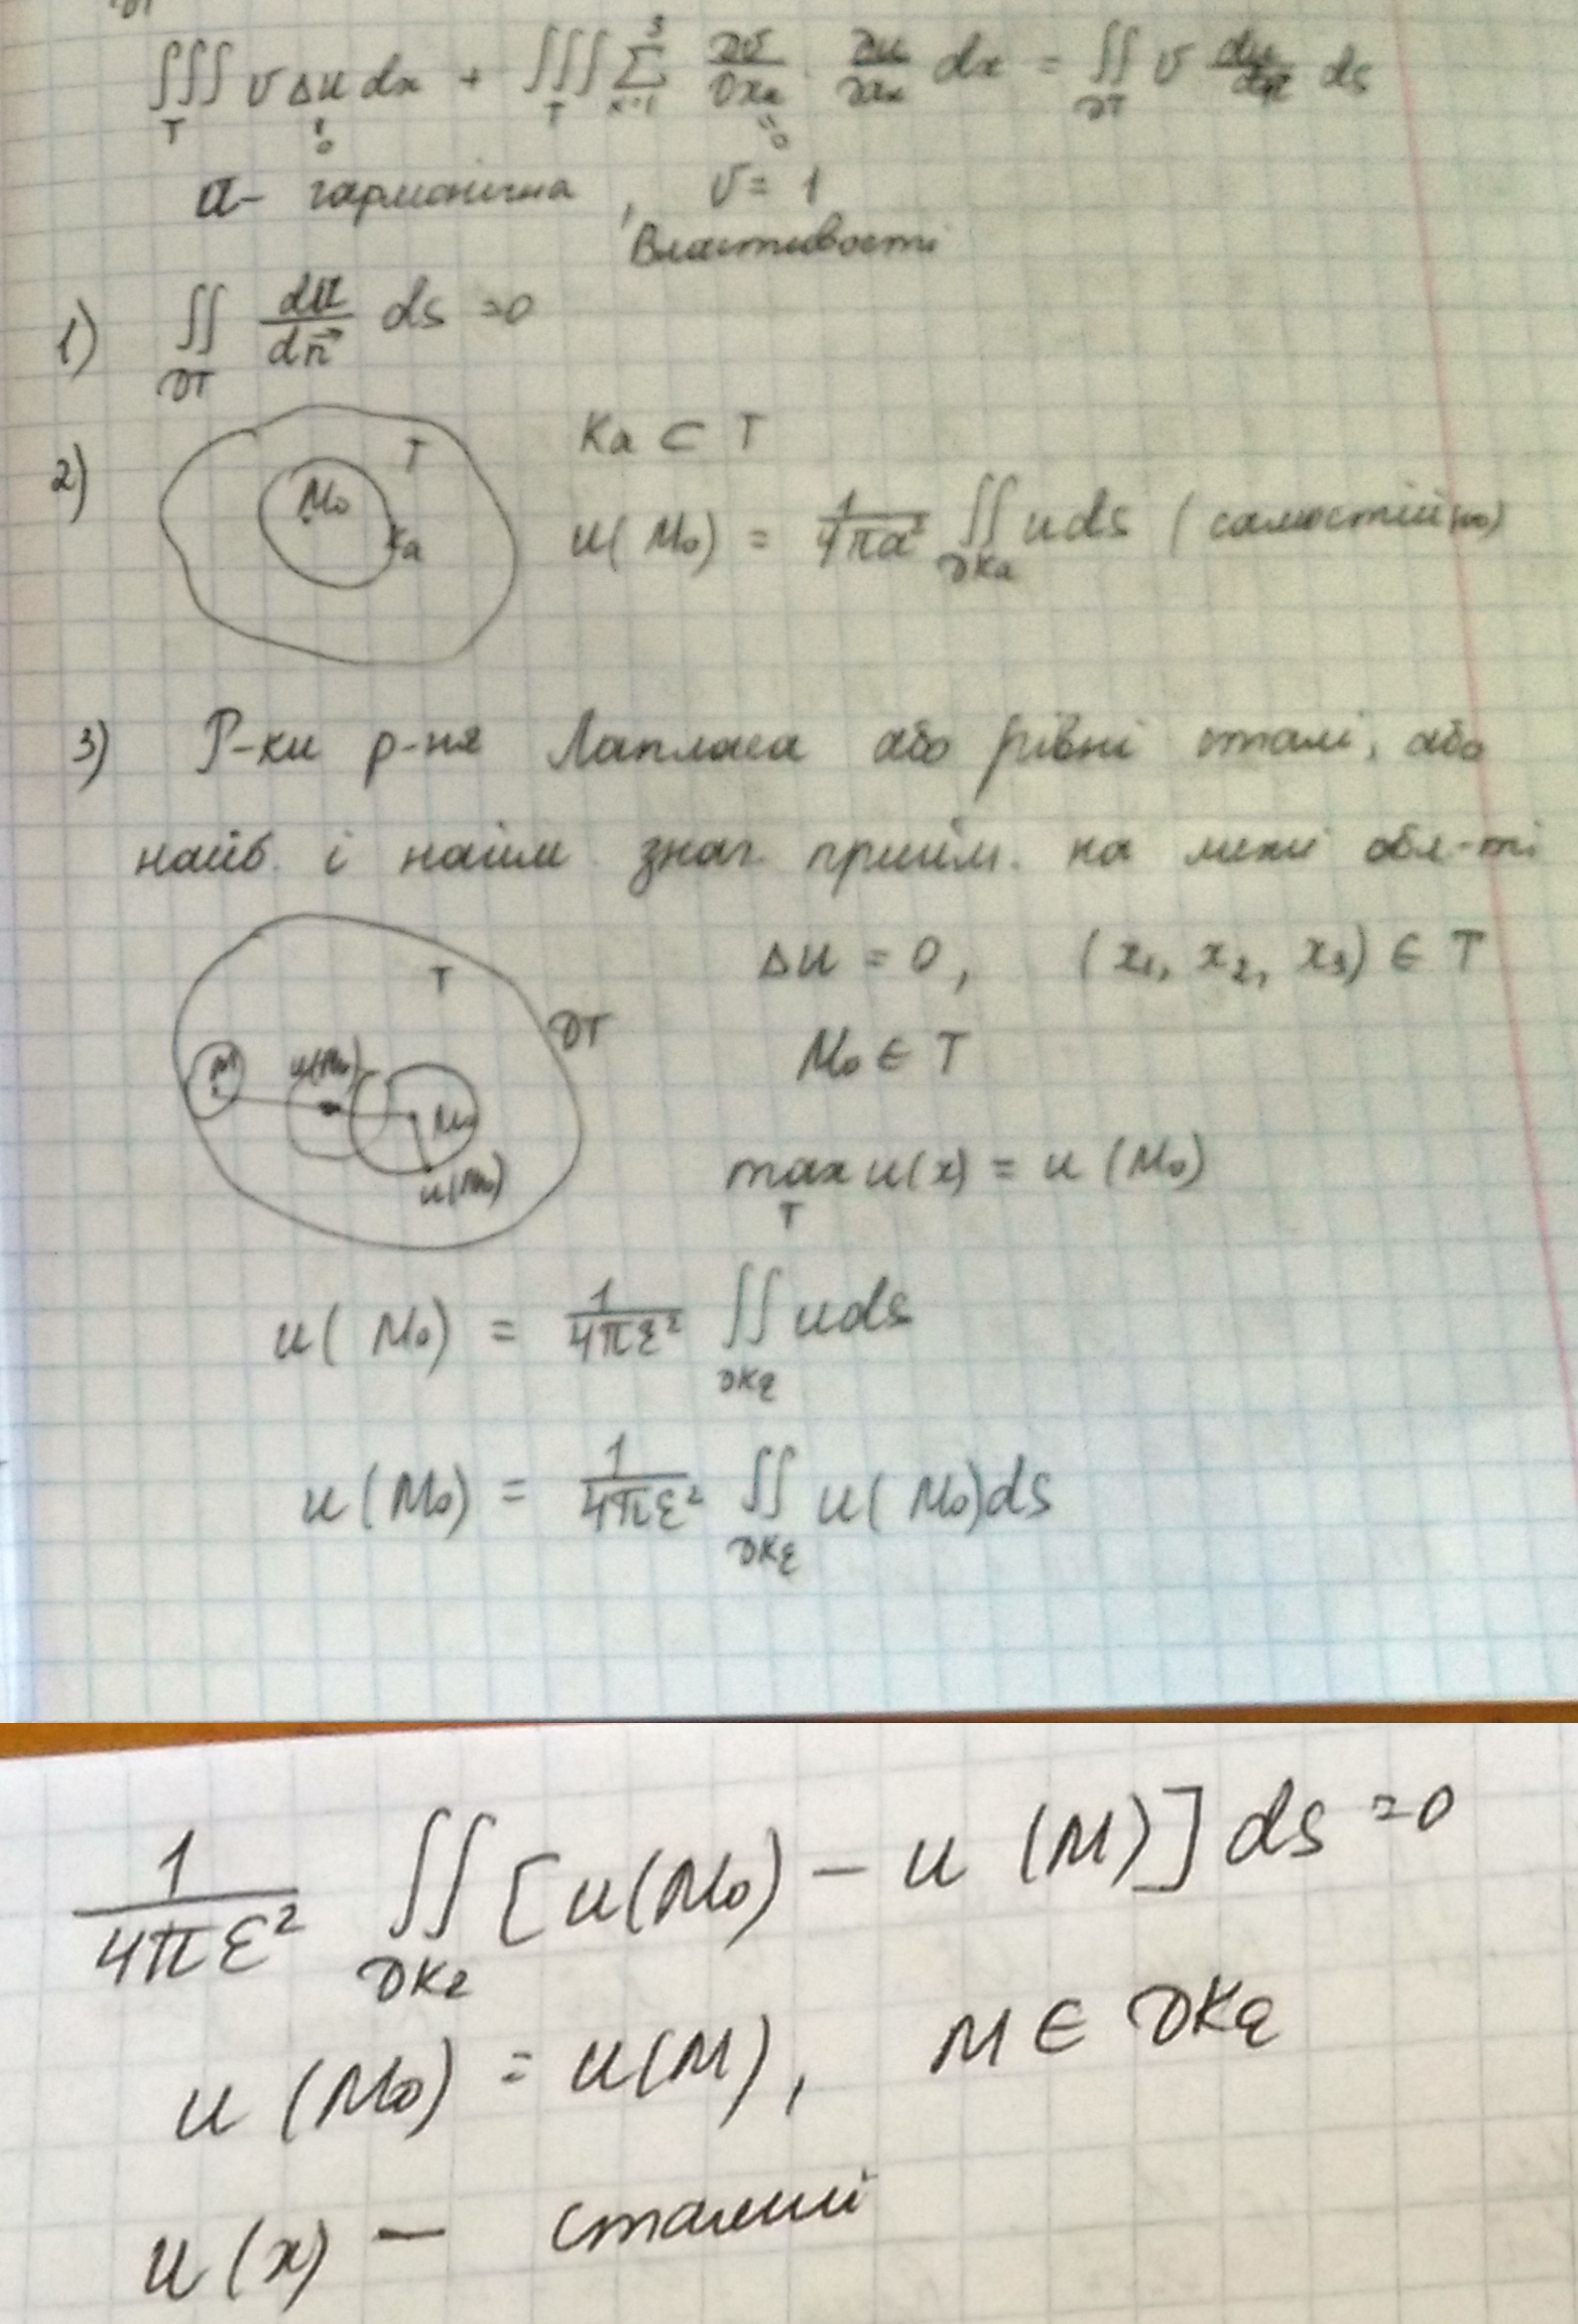 ∭_T v Δu dx + ∭_T ∑_{k=1}^{3} ∂v/∂x_k · ∂u/∂x_k dx = ∬_{∂T} v du/dn⃗ ds
=0 =0
u - гармонічна , v = 1
Властивості
1) ∬_{∂T} du/dn⃗ ds = 0
2) T M₀ Ka
Ka ⊂ T
u(M₀) = 1/(4πa²) ∬_{∂Ka} u ds (самостійно)
3) Р-ки р-ня Лапласа або рівні сталі, або
найб. і найм. знач. прийм. на межі обл-ті
T ∂T M u(M₀) M₀ u(M₀)
Δu = 0, (x₁, x₂, x₃) ∈ T
M₀ ∈ T
max_T u(x) = u(M₀)
u(M₀) = 1/(4πε²) ∬_{∂Kε} u ds
u(M₀) = 1/(4πε²) ∬_{∂Kε} u(M₀) ds
1/(4πε²) ∬_{∂Kε} [u(M₀) − u(M)] ds = 0
u(M₀) = u(M), M ∈ ∂Kε
u(x) — сталий